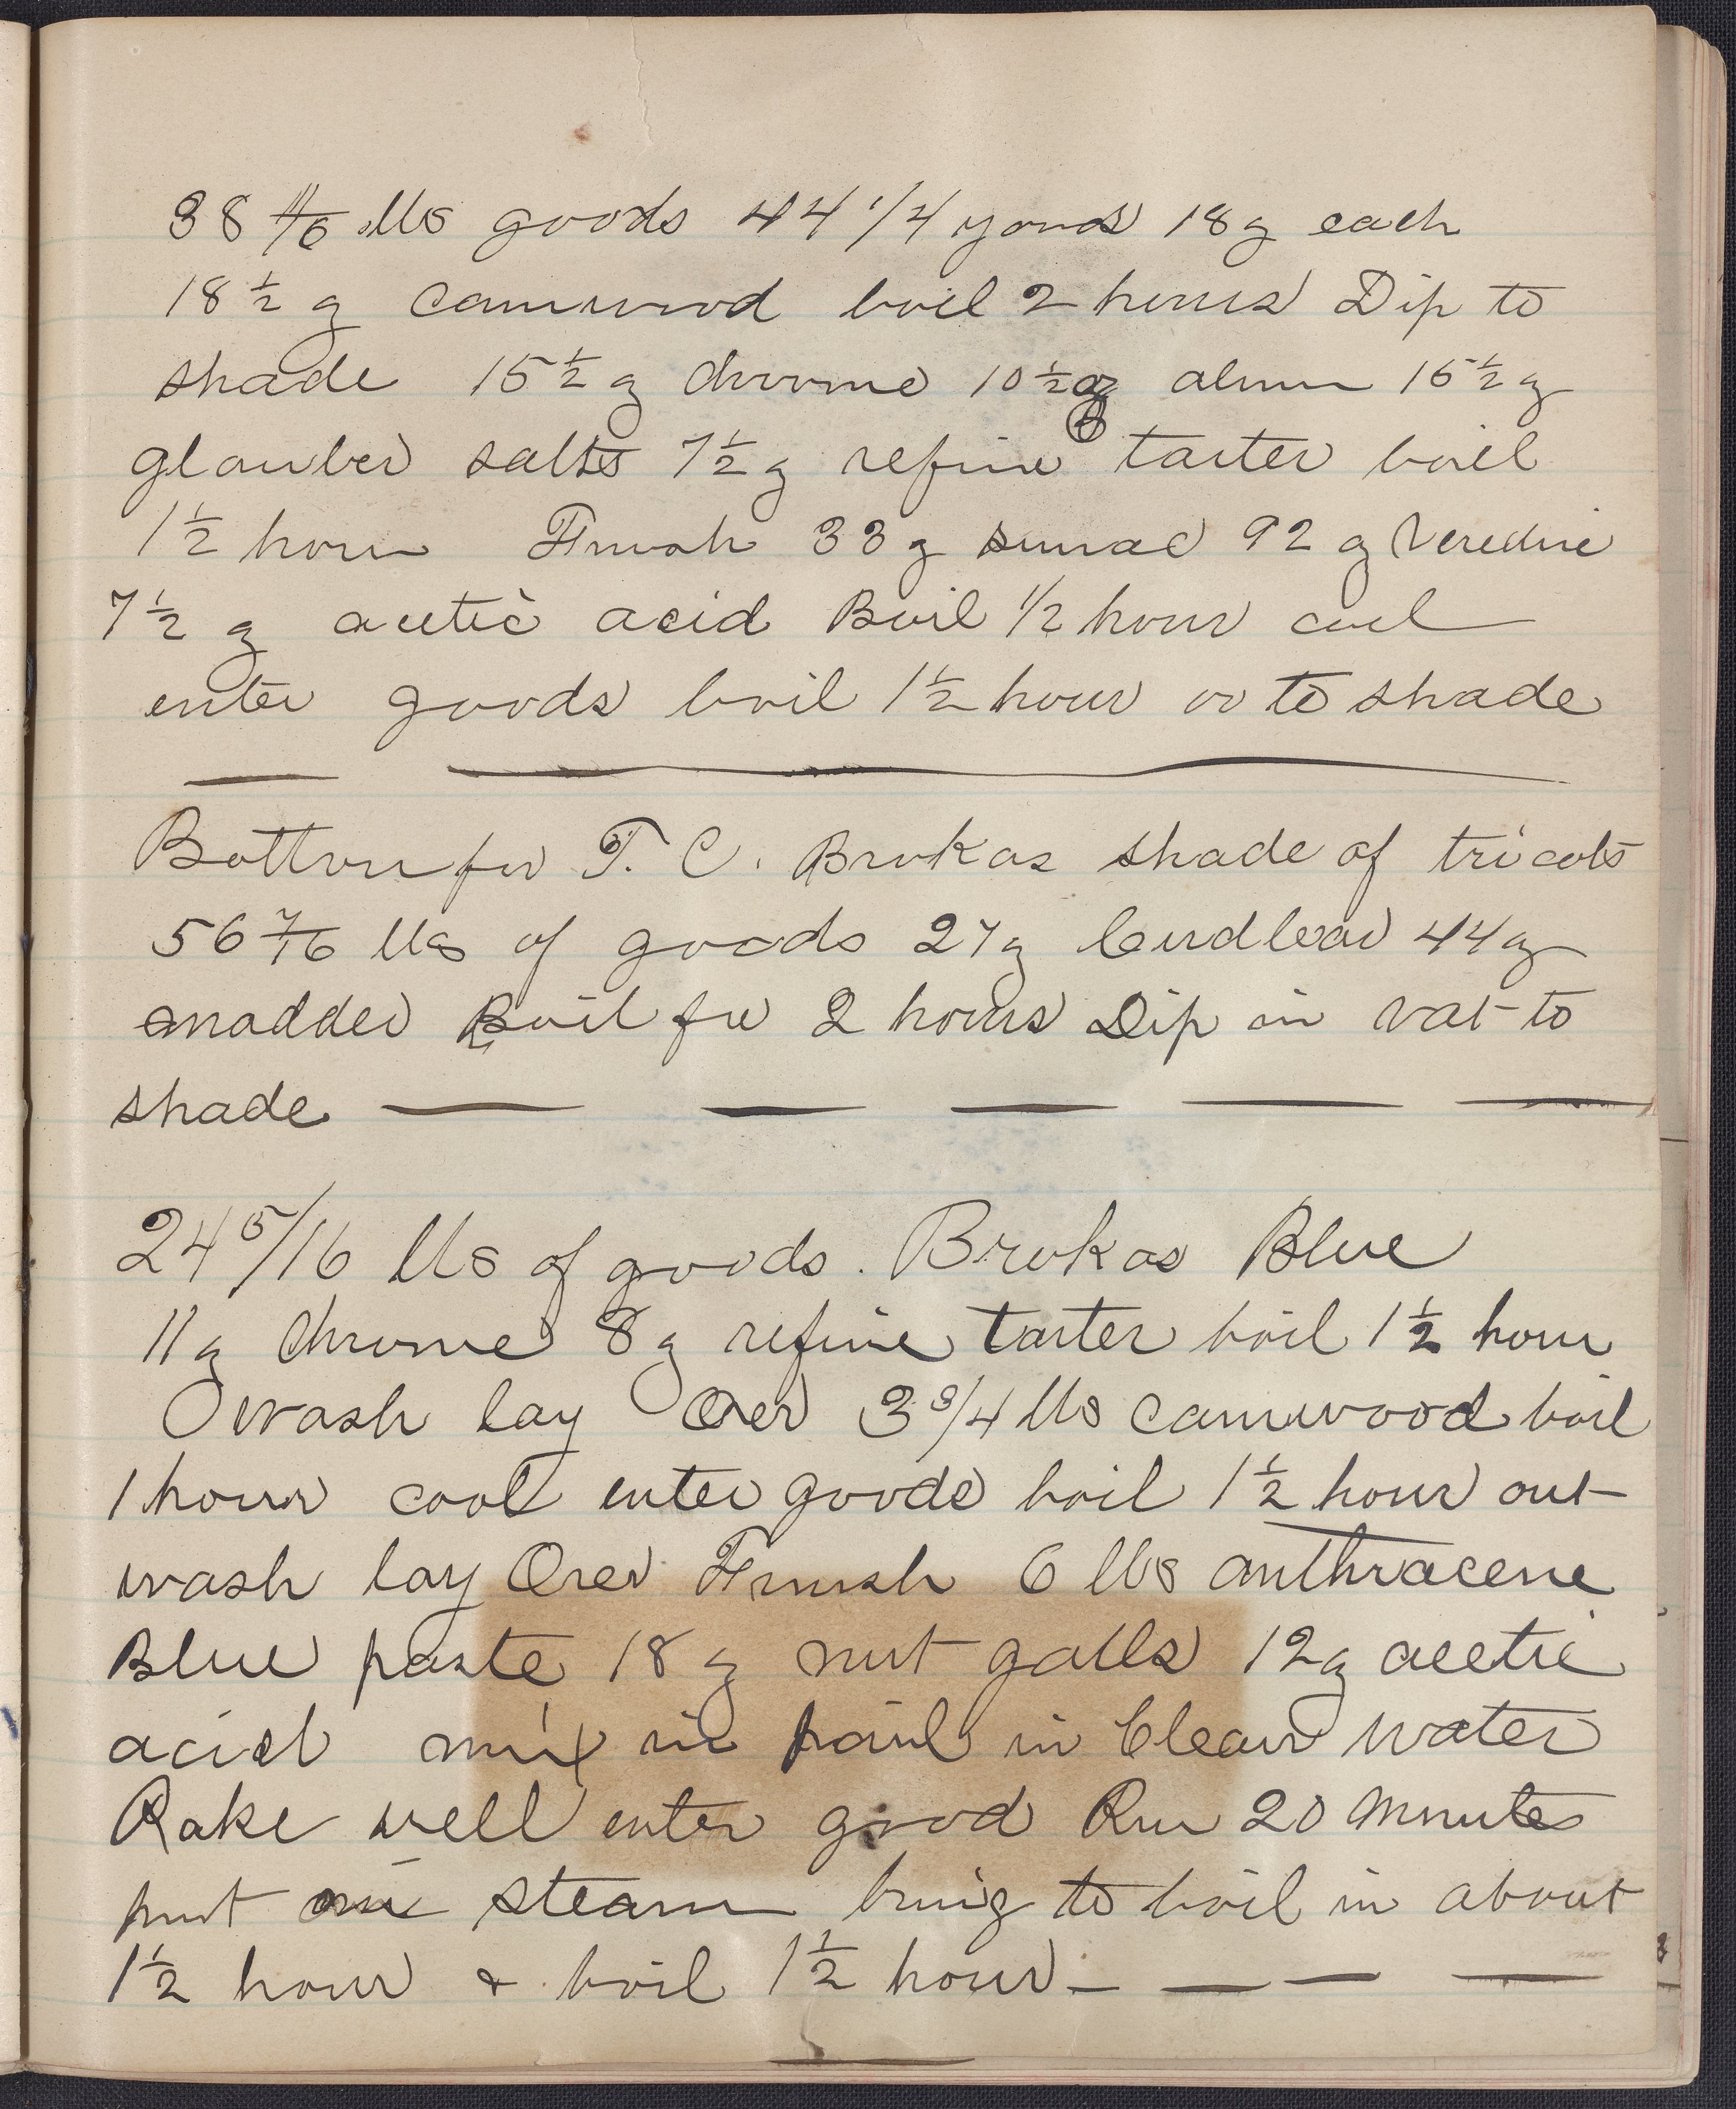 38 11/16 lbs goods 44 1/4 yards 18 g each
18 1/2 g camwood boil 2 hours Dip to
shade 15 1/2 g chrome 10 1/2 g alum 15 1/2 g
glauber salts 7 1/2 g refine tarter boil
1 1/2 hour Finish 33 g sumac 92 g Veredine
7 1/2 g acetic acid Boil 1/2 hour cool
enter goods boil 1 1/2 hour or to shade
Bottom for T. C. Brokas shade of tricots
56 7/16 lbs of goods 27 g Cudbear 44 g
madder Boil for 2 hours Dip in vat to
shade
24 5/16 lbs of goods. Brokas Blue
11 g Chrome 8 g refine tarter boil 1 1/2 hour
wash lay Over 3 3/4 lbs camwood boil
1 hour cool enter goods boil 1 1/2 hour out
wash lay Over Finish 6 lbs anthracene
Blue paste 18 g nut galls 12 g acetic
acid mix in pail in Clean water
Rake well enter good Run 20 Minutes
put on steam bring to boil in about
1 1/2 hour & boil 1 1/2 hour